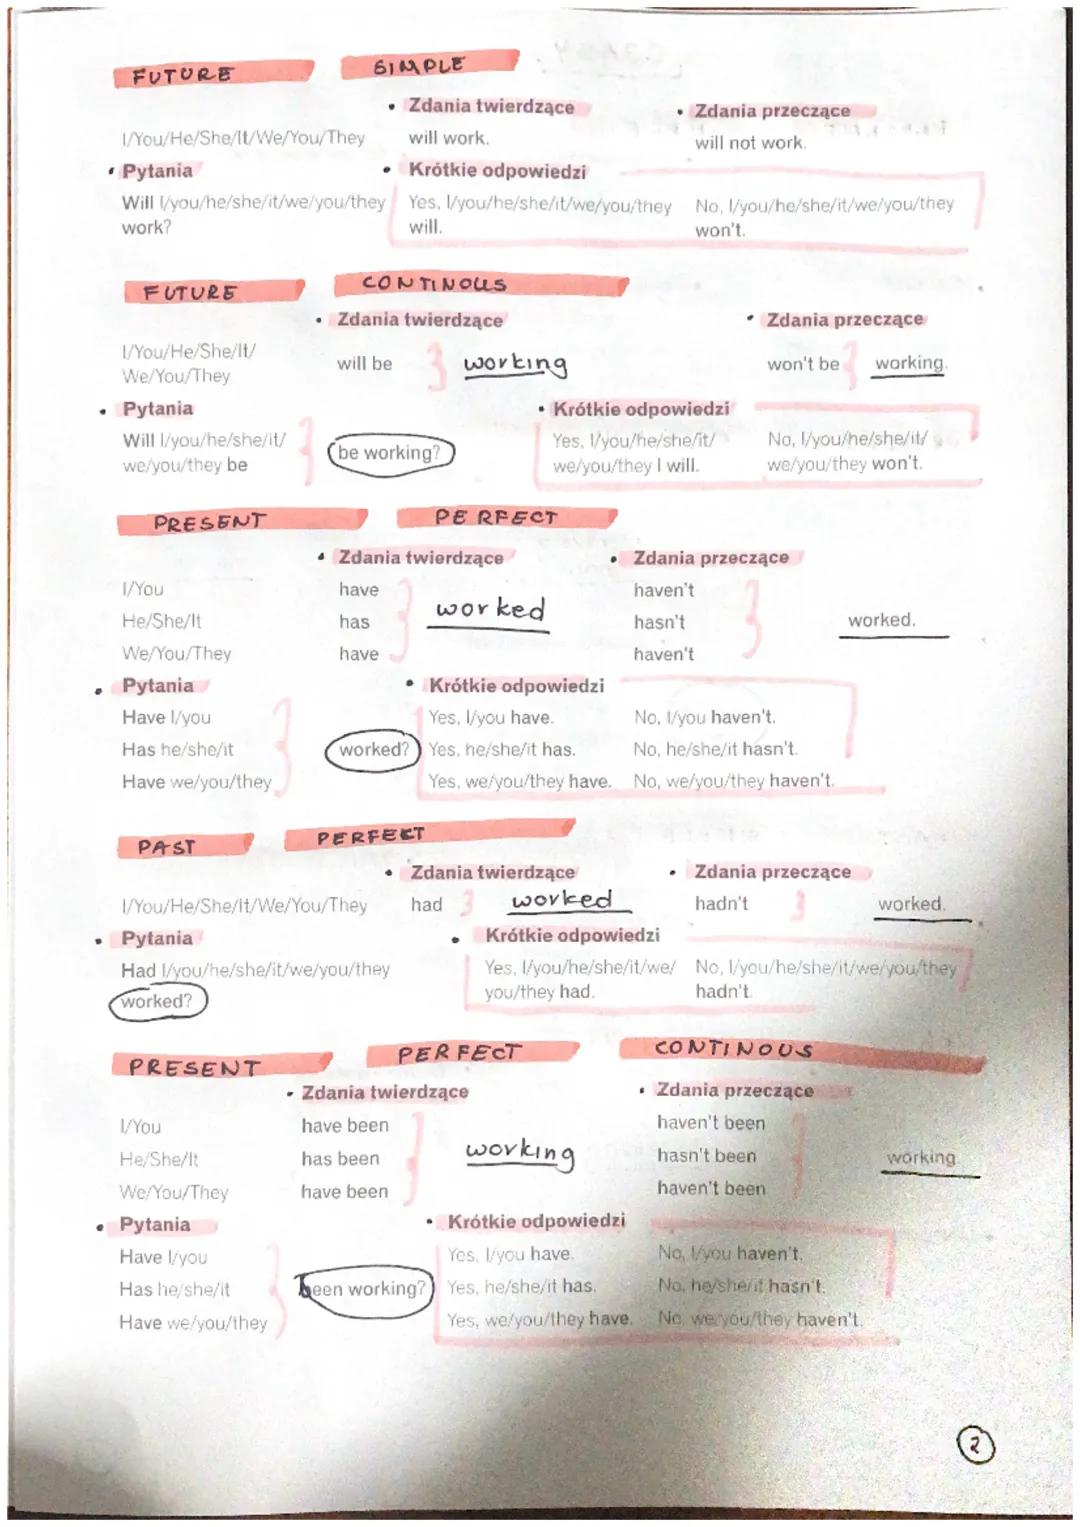 FUTURE SIMPLE
• Zdania twierdzące • Zdania przeczące
I/You/He/She/It/We/You/They will work. will not work.
• Pytania • Krótkie odpowiedzi
Will I/you/he/she/it/we/you/they Yes, I/you/he/she/it/we/you/they No, I/you/he/she/it/we/you/they
work? will. won't.
FUTURE CONTINOUS
• Zdania twierdzące • Zdania przeczące
I/You/He/She/It/
We/You/They will be working won't be working.
• Pytania • Krótkie odpowiedzi
Will I/you/he/she/it/ be working? Yes, I/you/he/she/it/ No, I/you/he/she/it/
we/you/they be we/you/they I will. we/you/they won't.
PRESENT PERFECT
• Zdania twierdzące • Zdania przeczące
I/You have haven't
He/She/It has worked hasn't worked.
We/You/They have haven't
• Pytania • Krótkie odpowiedzi
Have I/you Yes, I/you have. No, I/you haven't.
Has he/she/it worked? Yes, he/she/it has. No, he/she/it hasn't.
Have we/you/they Yes, we/you/they have. No, we/you/they haven't.
PAST PERFECT
• Zdania twierdzące • Zdania przeczące
I/You/He/She/It/We/You/They had worked hadn't worked.
• Pytania • Krótkie odpowiedzi
Had I/you/he/she/it/we/you/they Yes, I/you/he/she/it/we/ No, I/you/he/she/it/we/you/they
worked? you/they had. hadn't.
PRESENT PERFECT CONTINOUS
• Zdania twierdzące • Zdania przeczące
I/You have been haven't been
He/She/It has been working hasn't been working
We/You/They have been haven't been
• Pytania • Krótkie odpowiedzi
Have I/you Yes, I/you have. No, I/you haven't.
Has he/she/it been working? Yes, he/she/it has. No, he/she/it hasn't.
Have we/you/they Yes, we/you/they have. No, we/you/they haven't.
2